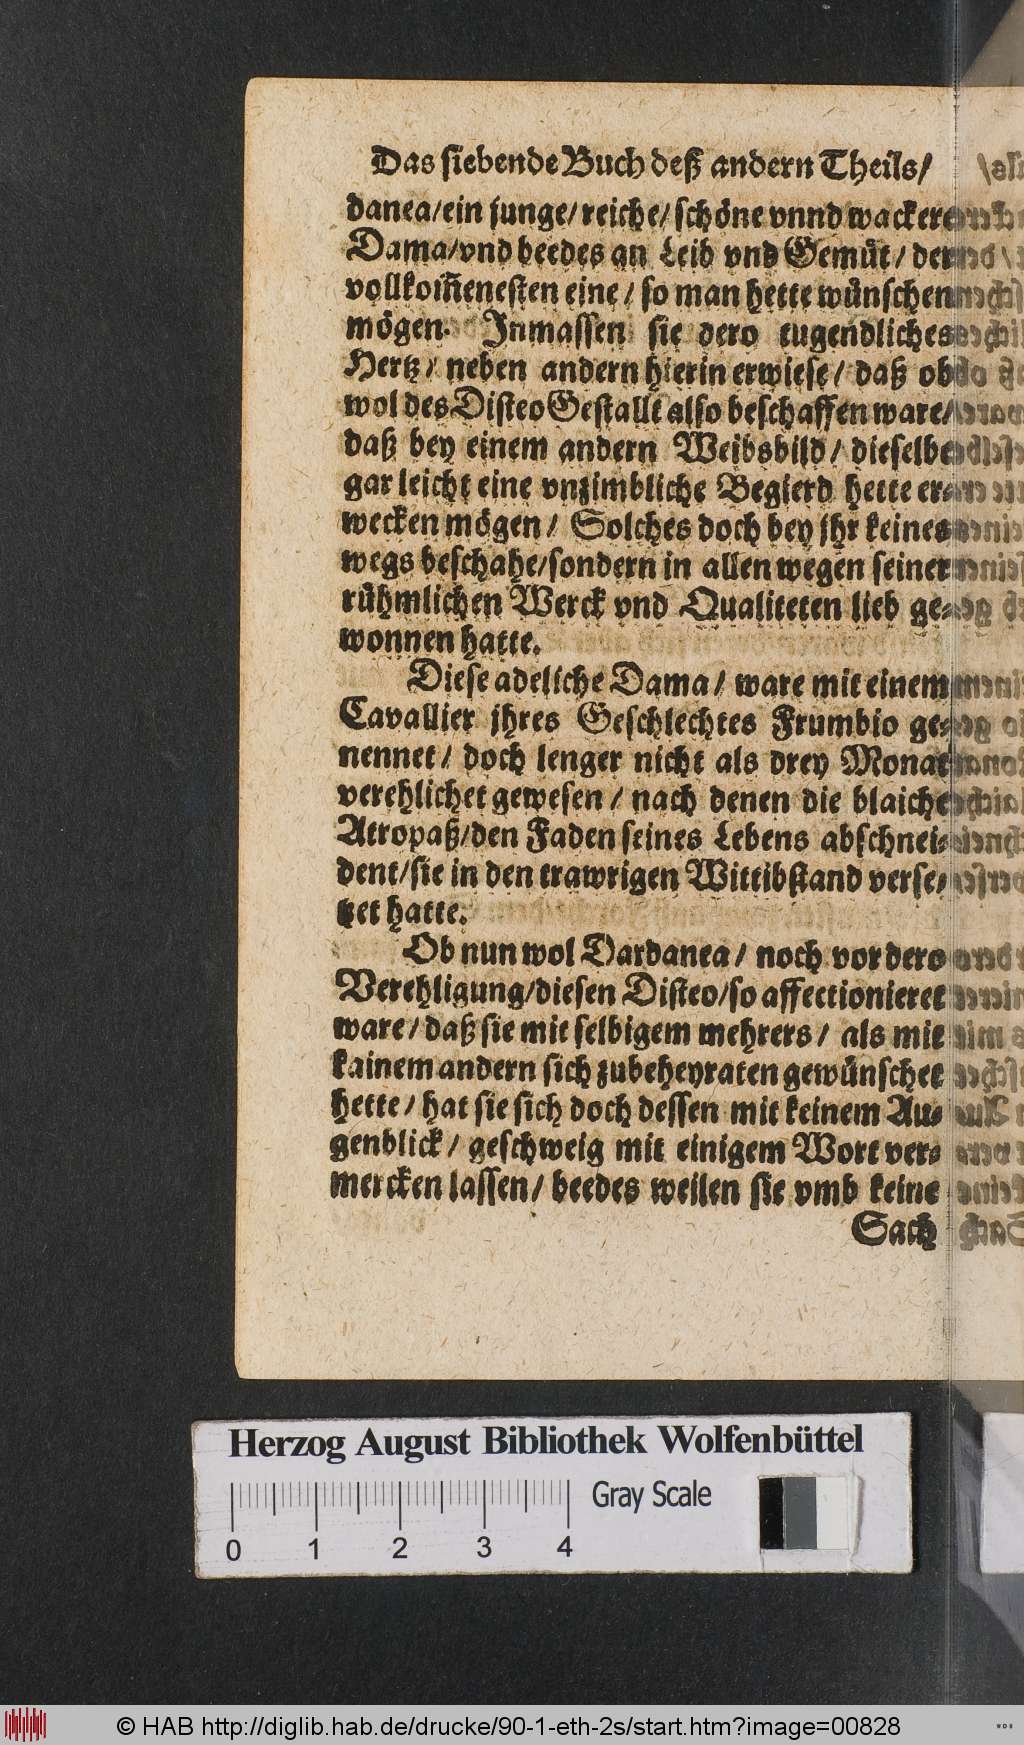 Das siebende Buch deß andern Theils/
danea/ein junge/reiche/schöne vnnd wackere
Dama/vnd beedes an Leib vnd Gemüt/der
vollkom̃enesten eine/so man hette wünschen
mögen. Inmassen sie dero tugendliches
Hertz/neben andern hierin erwiese/daß ob
wol des Disteo Gestallt also beschaffen ware/
daß bey einem andern Weibsbild/dieselbe
gar leicht eine vnzimbliche Begierd hette er-
wecken mögen/Solches doch bey jhr keines
wegs beschahe/sondern in allen wegen seiner
rühmlichen Werck vnd Qualiteten lieb ge-
wonnen hatte.
Diese adeliche Dama/ware mit einem
Cavallier jhres Geschlechtes Frumbio ge-
nennet/doch lenger nicht als drey Monat
verehlichet gewesen/nach denen die blaiche
Atropaß/den Faden seines Lebens abschnei-
dent/sie in den trawrigen Wittibstand verse-
tzet hatte.
Ob nun wol Dardanea/noch vor dero
Verehligung/diesen Disteo/so affectionieret
ware/daß sie mit selbigem mehrers/als mit
kainem andern sich zubeheyraten gewünschet
hette/hat sie sich doch dessen mit keinem Au-
genblick/geschweig mit einigem Wort ver-
mercken lassen/beedes weilen sie vmb keine
Sach
Herzog August Bibliothek Wolfenbüttel
Gray Scale
0 1 2 3 4
© HAB http://diglib.hab.de/drucke/90-1-eth-2s/start.htm?image=00828